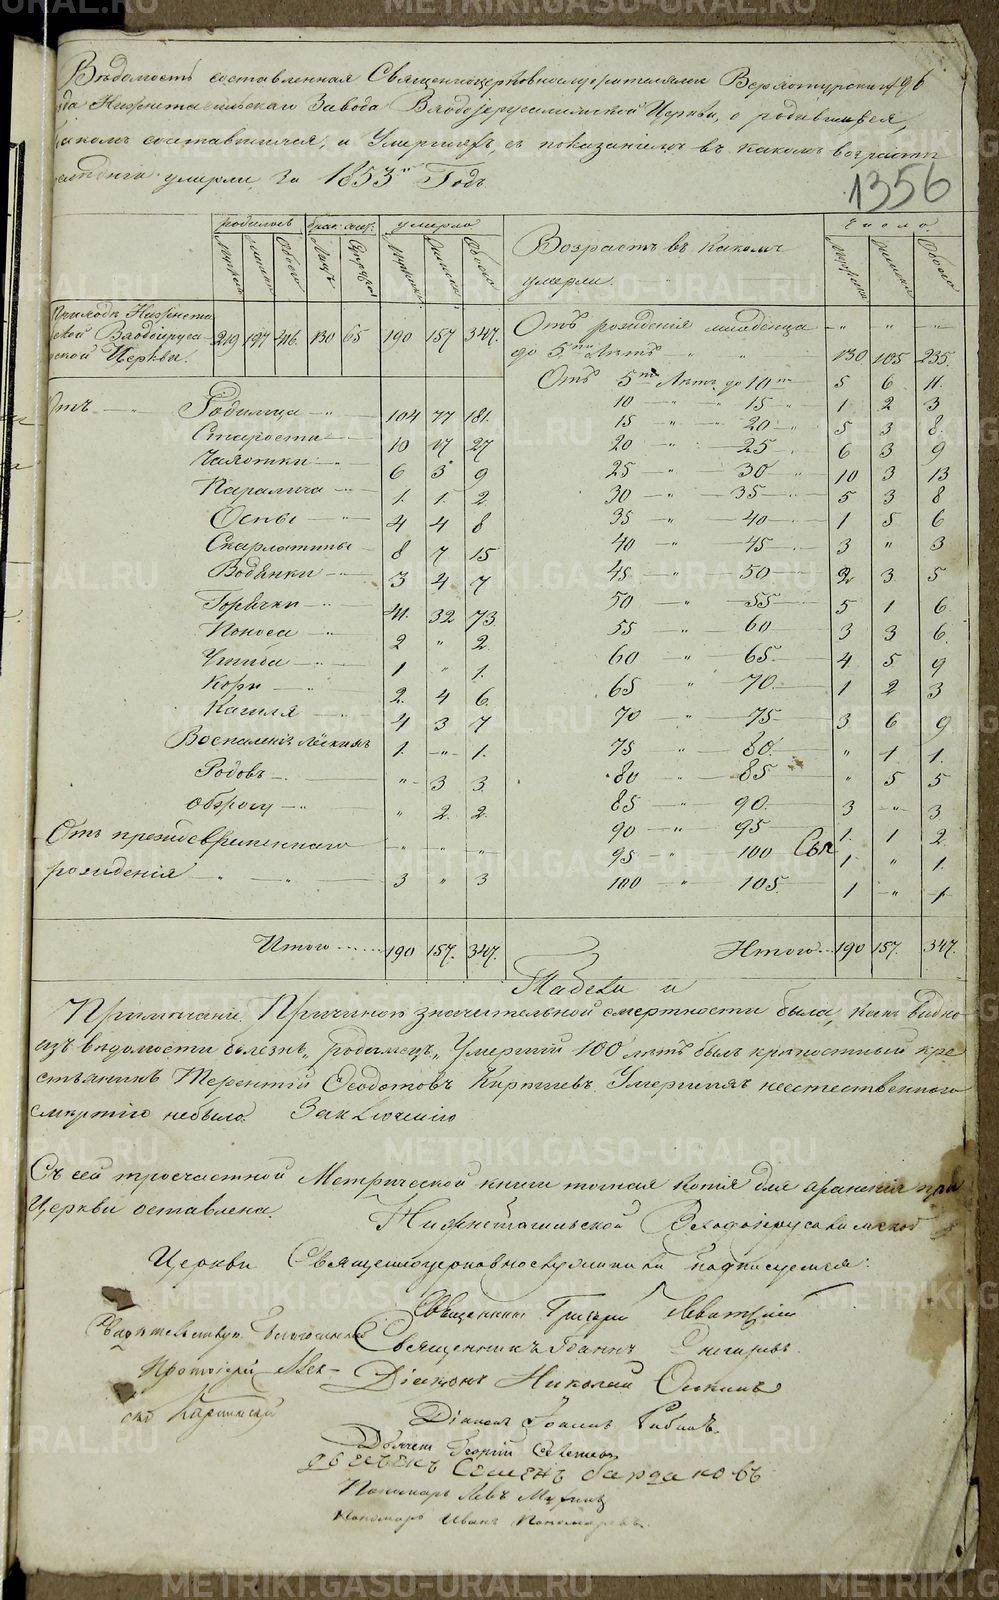 Вѣдомость составленная Священноцерковнослужителями Верхотурскаго
Нижнетагильскаго Завода Входоіерусалимской Церкви, о родившихся,
бракомъ сочетавшихся, и Умершихъ, съ показаніемъ въ какомъ возрастѣ
умерли, за 1853й Годъ.
196
1356
родилось
брак. соч.
умерло
Возрастъ въ какомъ
умерли.
Число
Мужска
Женска
Обоего
Мужска
Женска
Обоего
Мужска
Женска
Обоего
Приходъ Нижнета
ской Входоіеруса
ской Церкви. 219 197 416. 130 65 190 157 347.
Отъ рожденія младенца
до 5ти Лѣтъ 130 105 235.
Отъ 5ти Лѣтъ до 10ти 5 6 11.
10 15 1 2 3
15 20 5 3 8.
20 25 6 3 9
25 30 10 3 13
30 35 5 3 8
35 40 1 5 6
40 45 3 " 3
45 50 2 3 5
50 55 5 1 6.
55 60 3 3 6.
60 65 4 5 9
65 70 1 2 3
70 75 3 6 9
75 80 " 1 1.
80 85 " 5 5
85 90 3 " 3
90 95 1. 1 2
95 100 1 " 1.
100 105 1 " 1
Отъ Родимца 104 77 181.
Старости 10 17 27
Чахотки 6 3 9
Паралича 1. 1. 2
Оспы 4 4 8
Скарлатины 8 7 15
Водянки 3 4 7
Горячки 41. 32 73.
Поноса 2 " 2.
Ушиба 1 " 1.
Кори 2. 4 6.
Кашля 4 3 7
Воспаленія лёгкихъ 1. " 1.
Родовъ " 3 3.
" 2. 2.
Отъ преждевременнаго
рожденія 3 " 3
Итого 190 157. 347.
Итого 190 157. 347.
Примѣчаніе. Причиною значительной смертности была, какъ видно
изъ вѣдомости болѣзнь, "родимецъ", Умершій 100 лѣтъ былъ крѣпостный кре
стьянинъ Терентій Ѳедотовъ Умершихъ неестественною
смертію небыло.
Съ сей троечастной Метрической книги точная копія для храненія при
Церкви оставлена.
Нижнетагильской Входоіерусалимской
Церкви Священноцерковнослужители подписуемся:
Священникъ Григорій
Священникъ Іоаннъ
Діаконъ Николай
Діаконъ Іоаннъ
Дьячекъ Георгій
Дьячекъ Семенъ Бардаковъ
Пономарь Левъ
Пономарь Иванъ Пономаревъ.
Протоіерей
METRIKI.GASO-URAL.RU